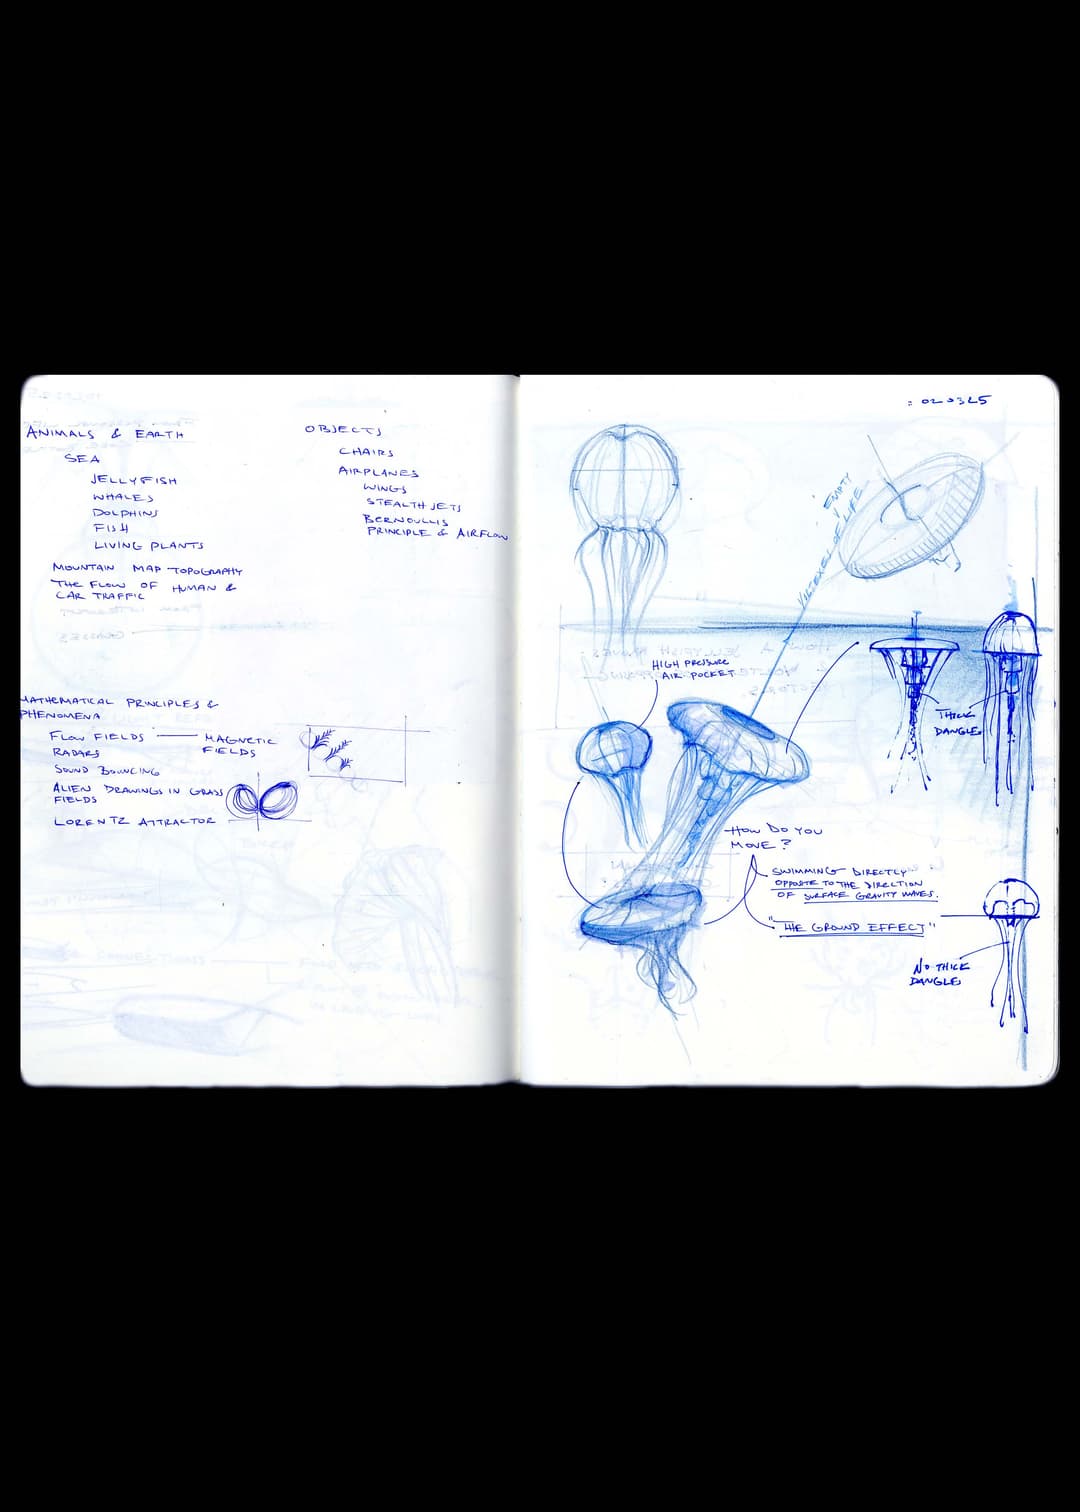 ANIMALS & EARTH
SEA
JELLYFISH
WHALES
DOLPHINS
FISH
LIVING PLANTS
MOUNTAIN MAP TOPOGRAPHY
THE FLOW OF HUMAN &
CAR TRAFFIC
OBJECTS
CHAIRS
AIRPLANES
WINGS
STEALTH JETS
BERNOULLIS
PRINCIPLE & AIRFLOW
MATHEMATICAL PRINCIPLES &
PHENOMENA
FLOW FIELDS
MAGNETIC
FIELDS
RADARS
SOUND BOUNCING
ALIEN DRAWINGS IN GRASS
FIELDS
LORENTZ ATTRACTOR
EMPTY
OF LIFE
HIGH PRESSURE
AIR POCKET
THICK
DANGLES
HOW DO YOU
MOVE?
SWIMMING DIRECTLY
OPPOSITE TO THE DIRECTION
OF SURFACE GRAVITY WAVES.
"THE GROUND EFFECT"
NO THICK
DANGLES